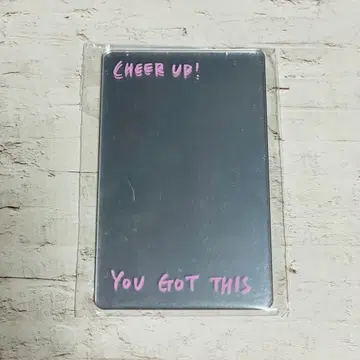 CHEER UP!
YOU GOT THIS